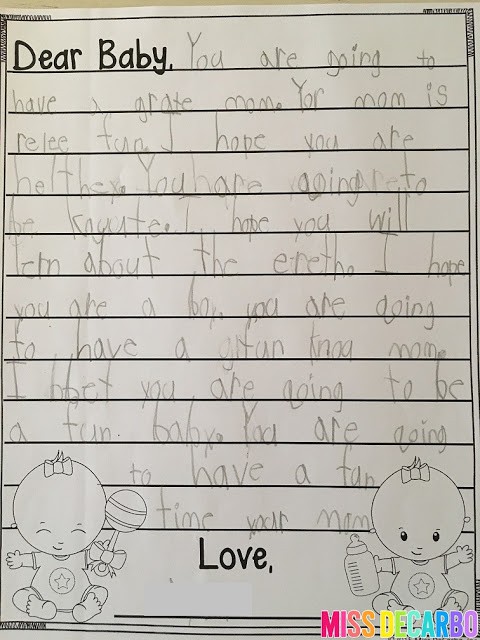 Dear Baby, You are going to
have a grate mom. Yor mom is
relee fun. I hope you are
helthey. You are going to
be kayute. I hope you will
lern about the ereth. I hope
you are a boy. you are going
to have a fun mom.
I bet you are going to be
a fun baby. You are going
to have a fun
time your mom
Love,
MISS DECARBO